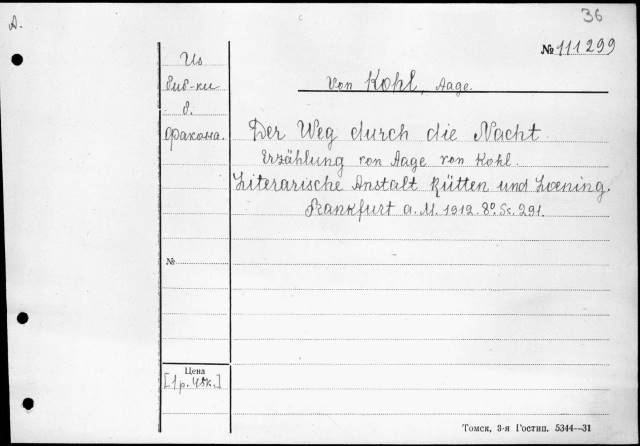 А.
36
№ 111299
Из
биб-ки
б.
Факона.
von Kohl, Aage.
Der Weg durch die Nacht
Erzählung von Aage von Kohl.
Literarische Anstalt Rütten und Loening.
Frankfurt a. M. 1912. 8º. Sc. 291.
№
Цена
[1 р. 45к.]
Томск, 3-я Гостип. 5344—31